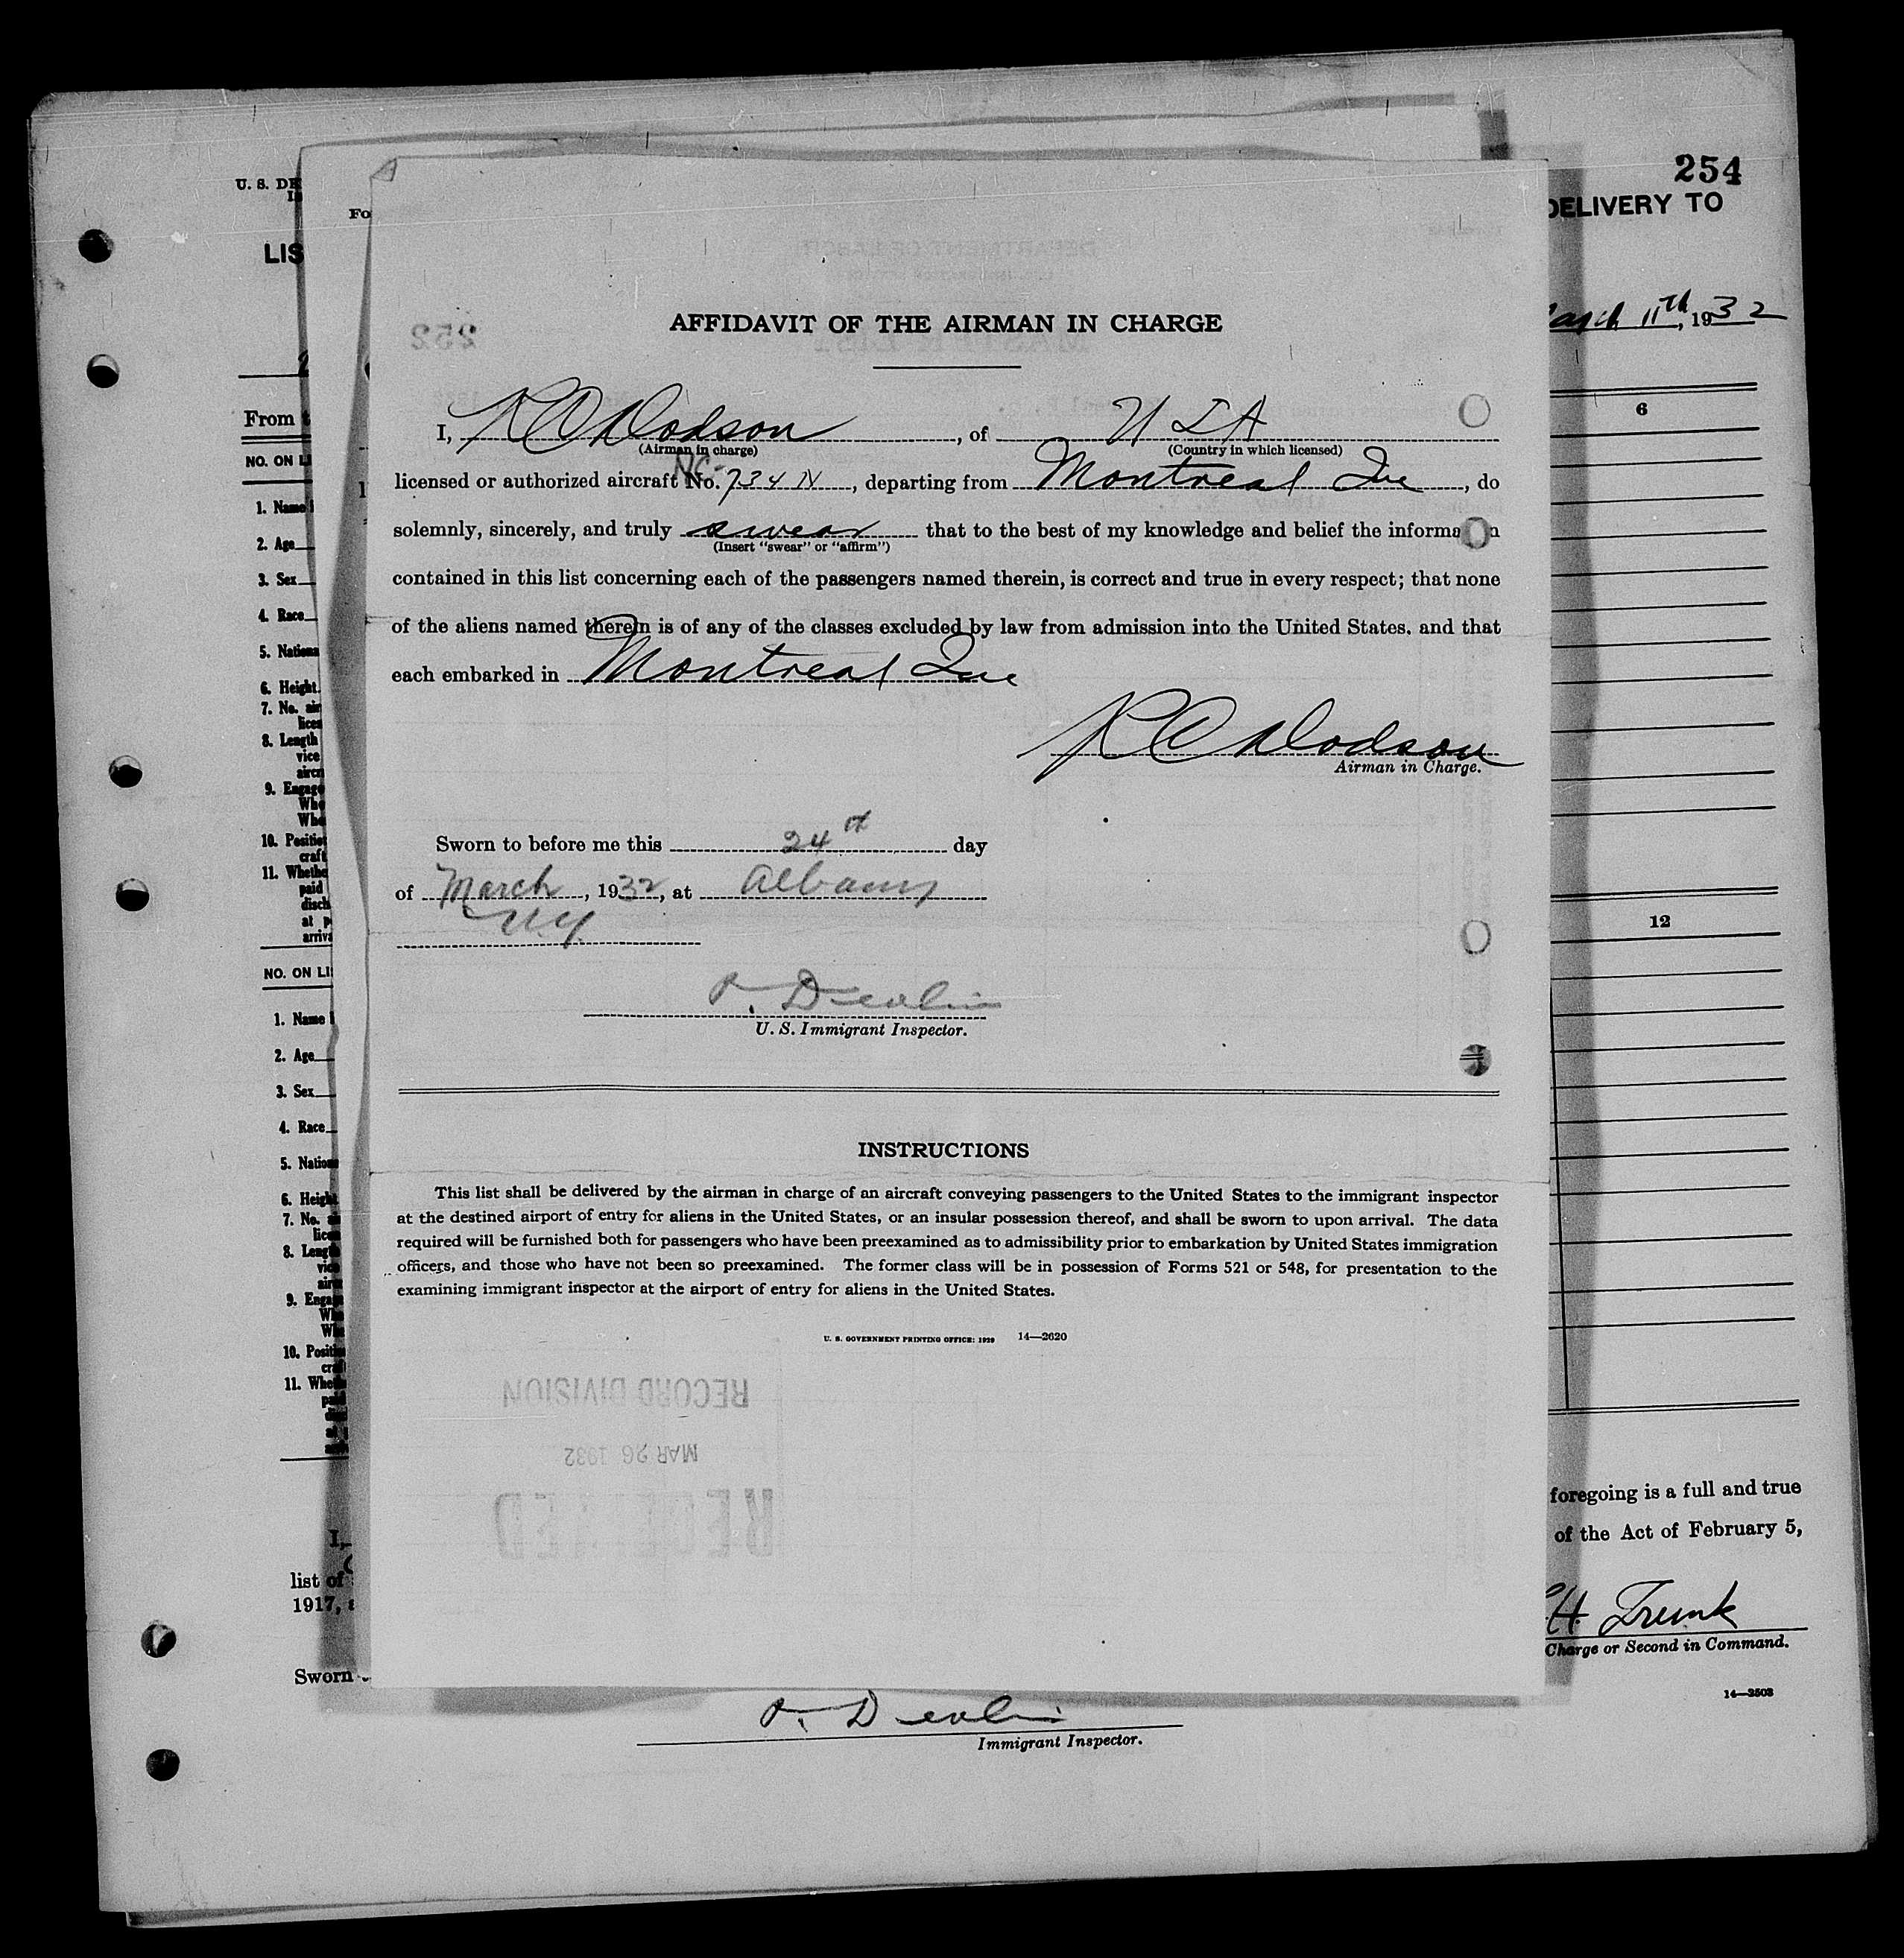 254
U. S. DE
DELIVERY TO
Fo
LIS
March 11th, 1932
From
NO. ON LI
6
1. Name
2. Age
3. Sex
4. Race
5. Nationa
6. Height
7. No. air
lices
8. Length
vice
aircr
9. Engage
Whe
Whe
10. Position
craft
11. Whethe
paid
disch
at p
arriva
NO. ON LI
12
1. Name
2. Age
3. Sex
4. Race
5. Nation
6. Height
7. No.
lice
8. Lengt
vice
9. Engag
Wh
Wh
10. Positi
11. Whet
AFFIDAVIT OF THE AIRMAN IN CHARGE
252
I, R C Dodson, of USA
(Airman in charge) (Country in which licensed)
licensed or authorized aircraft No. NC-734N, departing from Montreal Que, do
solemnly, sincerely, and truly swear that to the best of my knowledge and belief the informa n
(Insert "swear" or "affirm")
contained in this list concerning each of the passengers named therein, is correct and true in every respect; that none
of the aliens named therein is of any of the classes excluded by law from admission into the United States, and that
each embarked in Montreal Que
R C Dodson
Airman in Charge.
Sworn to before me this 24th day
of March, 1932, at Albany
N.Y.
P. Devlin
U. S. Immigrant Inspector.
INSTRUCTIONS
This list shall be delivered by the airman in charge of an aircraft conveying passengers to the United States to the immigrant inspector
at the destined airport of entry for aliens in the United States, or an insular possession thereof, and shall be sworn to upon arrival. The data
required will be furnished both for passengers who have been preexamined as to admissibility prior to embarkation by United States immigration
officers, and those who have not been so preexamined. The former class will be in possession of Forms 521 or 548, for presentation to the
examining immigrant inspector at the airport of entry for aliens in the United States.
U. S. GOVERNMENT PRINTING OFFICE: 1929 14—2620
RECORD DIVISION
MAR 26 1932
RECEIVED
foregoing is a full and true
I,
of the Act of February 5,
list of
1917,
H. Trunk
Charge or Second in Command.
Sworn
14—3503
P. Devlin
Immigrant Inspector.